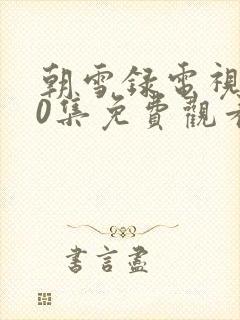 朝雪録電視
0集免費觀看
書言盡